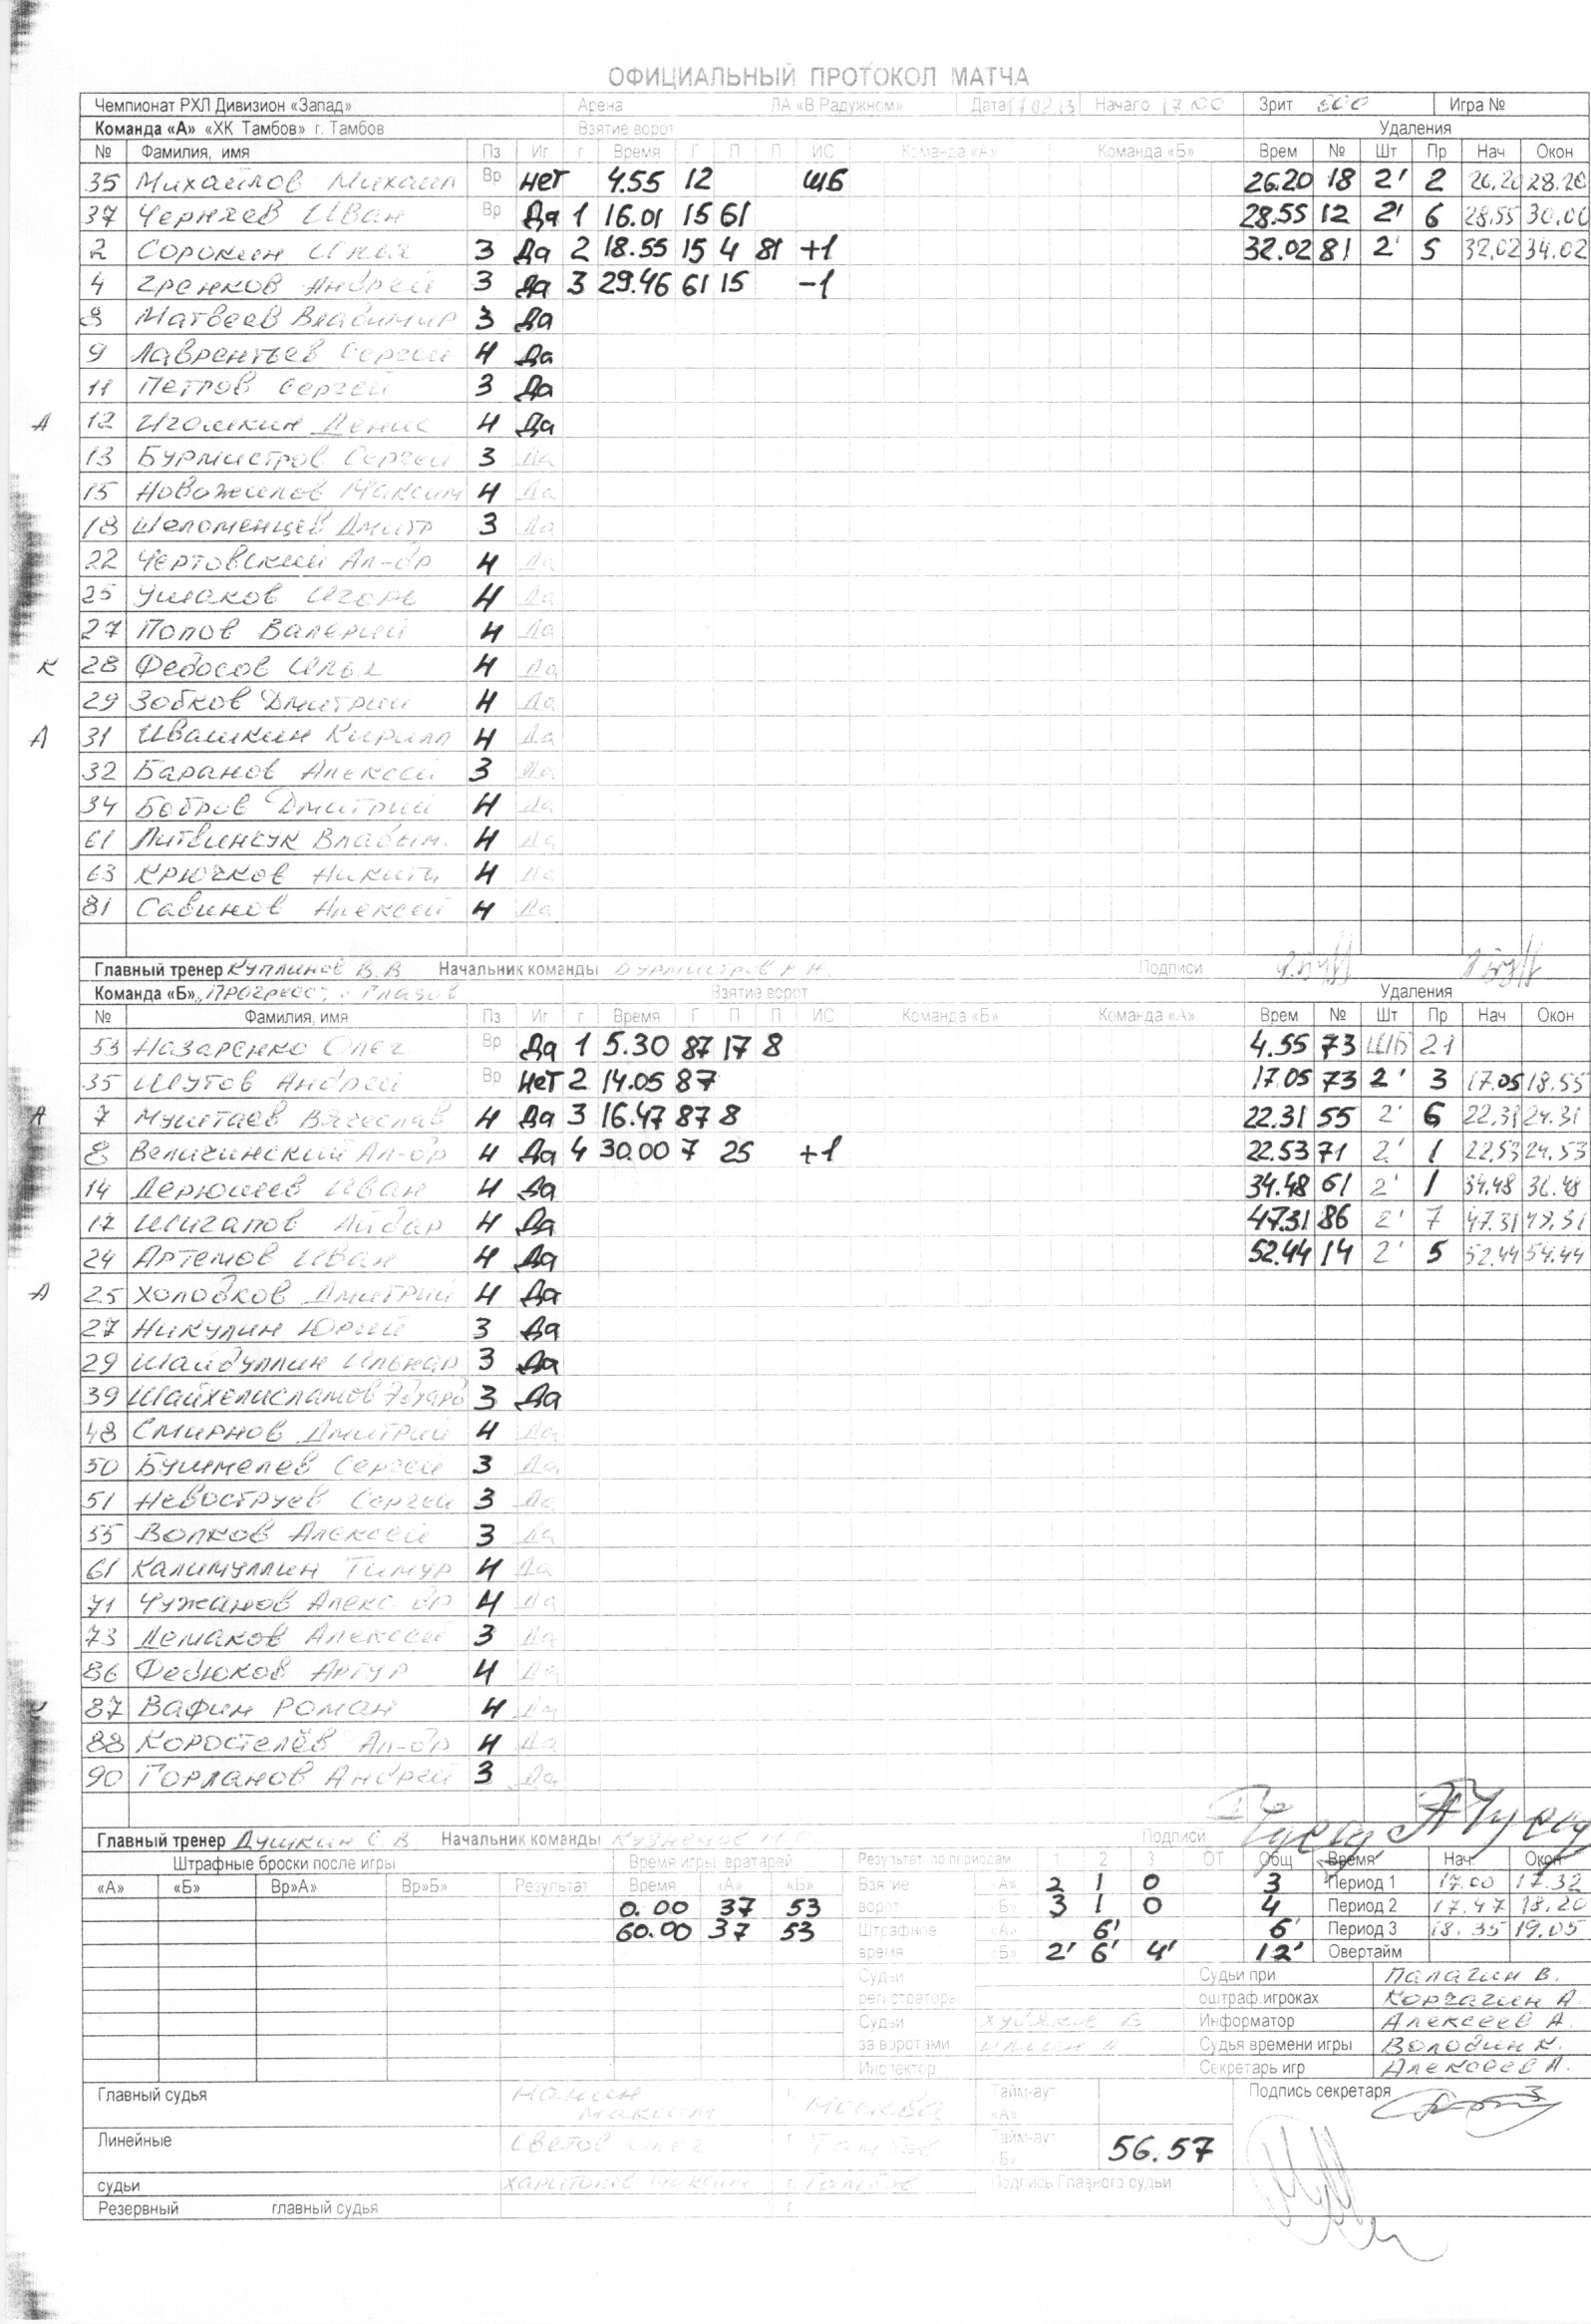 ОФИЦИАЛЬНЫЙ ПРОТОКОЛ МАТЧА
Чемпионат РХЛ Дивизион «Запад» Арена ЛА «В Радужном» Дата 17.02.13 Начало 17 00 Зрит 800 Игра №
Команда «А» «ХК Тамбов» г. Тамбов Взятие ворот Удаления
№ Фамилия, имя Пз Иг г Время Г П П ИС Команда «А» Команда «Б» Врем № Шт Пр Нач Окон
35 Михайлов Михаил Вр нет 4.55 12 ШБ 26.20 18 2' 2 26.20 28.20
37 Черняев Иван Вр Да 1 16.01 15 61 28.55 12 2' 6 28.55 30.00
2 Сорокин Илья 3 Да 2 18.55 15 4 81 +1 32.02 81 2' 5 32.02 34.02
4 Гренков Андрей 3 Да 3 29.46 61 15 -1
8 Матвеев Владимир 3 Да
9 Лаврентьев Сергей Н Да
11 Петров Сергей 3 Да
А 12 Игошкин Денис Н Да
13 Бурмистров Сергей 3 Да
15 Новожилов Максим Н Да
18 Шеломенцев Дмитр 3 Да
22 Чертовский Ал-др Н Да
25 Ушаков Игорь Н Да
27 Попов Валерий Н Да
К 28 Федосов Илья Н Да
29 Зобков Дмитрий Н Да
А 31 Ивашкин Кирилл Н Да
32 Баранов Алексей 3 Да
34 Бобров Дмитрий Н Да
61 Литвинчук Владим. Н Да
63 Крючков Никита Н Да
81 Савинов Алексей Н Да
Главный тренер Куплинов В.В Начальник команды Бурмистров Подписи
Команда «Б» „Прогресс" Глазов Взятие ворот Удаления
№ Фамилия, имя Пз Иг г Время Г П П ИС Команда «Б» Команда «А» Врем № Шт Пр Нач Окон
53 Назаренко Олег Вр Да 1 5.30 87 17 8 4.55 73 ШБ 21
35 Шутов Андрей Вр Нет 2 14.05 87 17.05 73 2' 3 17.05 18.55
А 7 Муштаев Вячеслав Н Да 3 16.47 87 8 22.31 55 2' 6 22.31 24.31
8 Величинский Ал-др Н Да 4 30.00 7 25 +1 22.53 71 2' 1 22.53 24.53
14 Дерюшев Иван Н Да 34.48 61 2' 1 34.48 36.48
17 Шигапов Айдар Н Да 47.31 86 2' 7 47.31 49.31
24 Артемов Иван Н Да 52.44 14 2' 5 52.44 54.44
А 25 Холодков Дмитрий Н Да
27 Никулин Юрий 3 Да
29 Шайдуллин Ильнар 3 Да
39 Шайхелисламов Эдуард 3 Да
48 Смирнов Дмитрий Н Да
50 Бушмелев Сергей 3 Да
51 Невоструев Сергей 3 Да
55 Волков Алексей 3 Да
61 Калимуллин Тимур Н Да
71 Чужанов Алекс др Н Да
73 Демаков Алексей 3 Да
86 Федюков Артур Н Да
87 Вафин Роман Н Да
88 Коростелёв Ал-др Н Да
90 Горланов Андрей 3 Да
Главный тренер Душкин С.В Начальник команды Кузнецов Подписи
Штрафные броски после игры Время игры вратарей Результат по периодам 1 2 3 ОТ Общ Время Нач Окон
«А» «Б» Вр»А» Вр»Б» Результат Время «А» «Б» Взятие «А» 2 1 0 3 Период 1 17.00 17.32
0.00 37 53 ворот «Б» 3 1 0 4 Период 2 17.47 18.20
60.00 37 53 Штрафное «А» 6' 6' Период 3 18.35 19.05
время «Б» 2' 6' 4' 12' Овертайм
Судьи Судьи при Палагин В.
регистраторы оштраф.игроках Корчагин А.
Судьи Худяков В Информатор Алексеев А.
за воротами Судья времени игры Володин К.
Инспектор Секретарь игр Алексеев А.
Главный судья Максим г. Москва Тайм-аут «А» Подпись секретаря
Линейные Цветов Олег г. Тамбов Тайм-аут «Б» 56.57
судьи Харитонов Максим г. Тамбов Подпись Главного судьи
Резервный главный судья г.